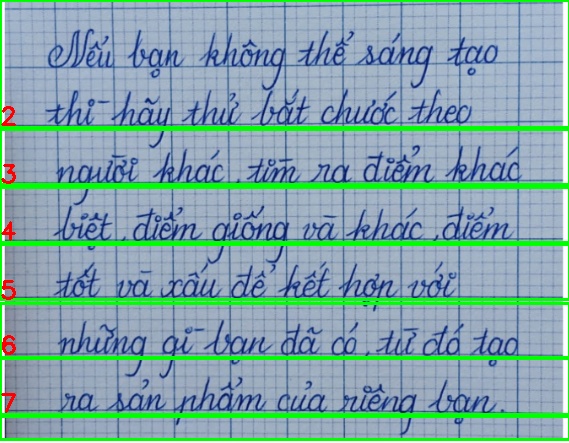 Nếu bạn không thể sáng tạo
2 thì hãy thử bắt chước theo
3 người khác, tìm ra điểm khác
4 biệt, điểm giống và khác, điểm
5 tốt và xấu để kết hợp với
6 những gì bạn đã có, từ đó tạo
7 ra sản phẩm của riêng bạn.